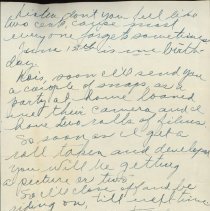 Listen, don't you feel like
two cents, cause most
everyone forgets sometimes.
June 12th is one birth-
day.
Lois, soon I'll send you
a couple of snaps as a
party at home loaned
me their camera and I
have two rolls of films
So soon as I get a
roll taken and developed
you will be getting
a picture or two.
So I'll close off and be
riding on, till next time